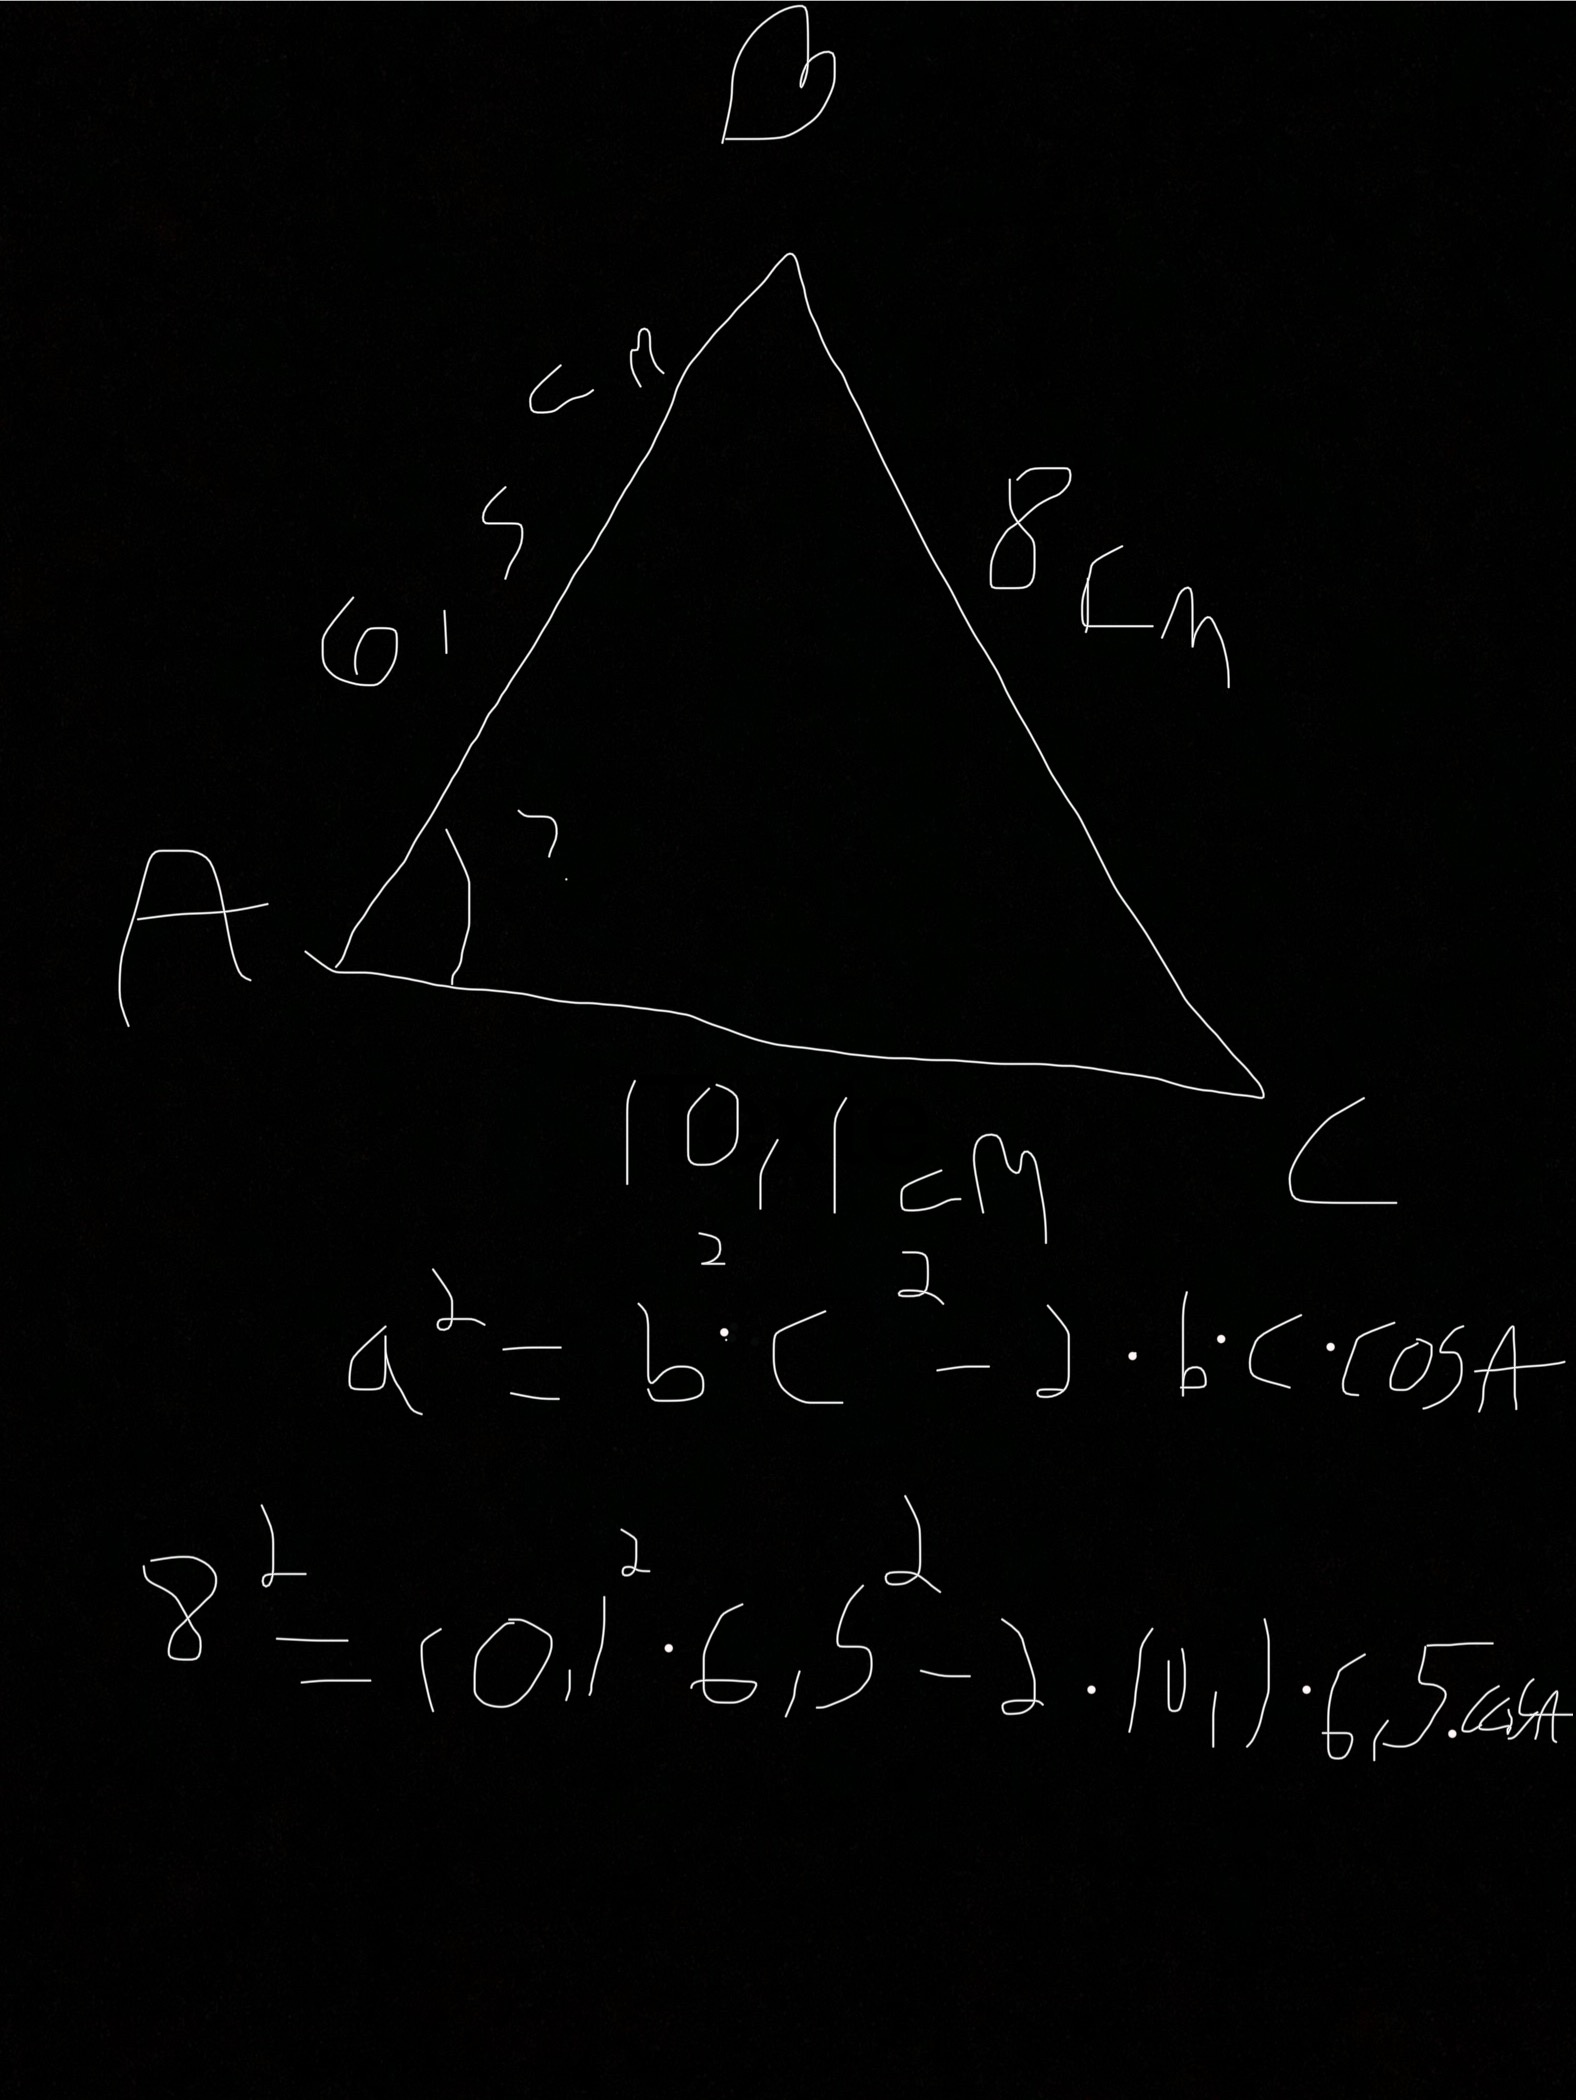 B
6,5 cm
8 cm
?
A
10,1 cm
C
a² = b² · c² - 2 · b · c · cosA
8² = 10,1² · 6,5² - 2 · 10,1 · 6,5 · cosA